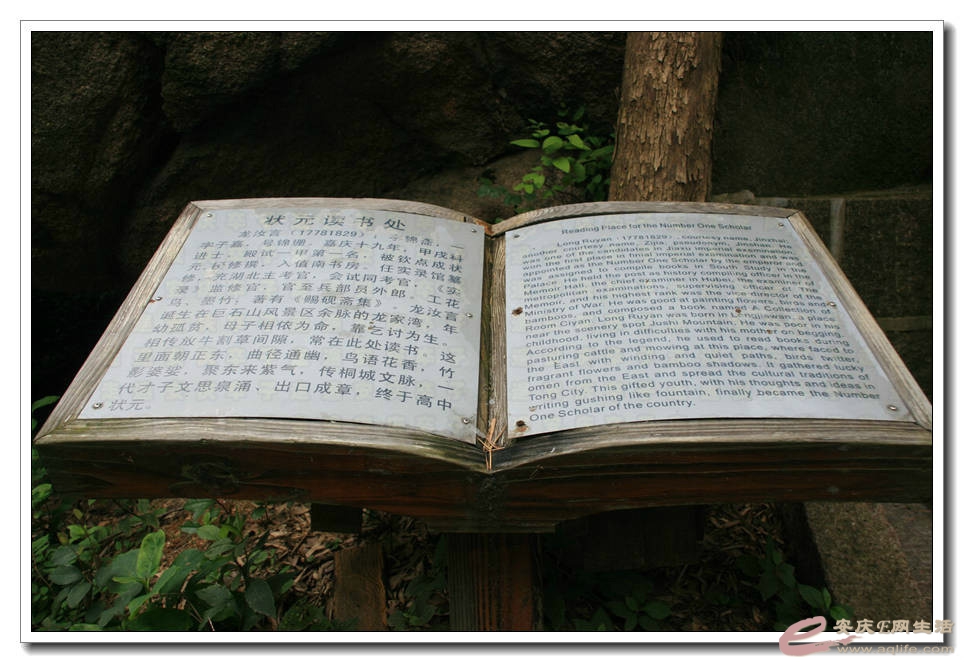 状元读书处
龙汝言（17781829），字锦斋，一
字子嘉，号锦珊。嘉庆十九年，甲戌科
进士，殿试一甲第一名，被钦点成状
元。授修撰，入值南书房，任实录馆纂
修，充湖北主考官，会试同考官，《实
录》监修官，官至兵部员外郎。工花
鸟，墨竹；著有《赐砚斋集》。龙汝言
诞生在巨石山风景区余脉的龙家湾，年
幼孤贫，母子相依为命，靠乞讨为生。
相传放牛割草间隙，常在此处读书。这
里面朝正东，曲径通幽，鸟语花香，竹
影婆娑，聚东来紫气，传桐城文脉，一
代才子文思泉涌、出口成章，终于高中
状元。
Reading Place for the Number One Scholar
Long Ruyan (17781829), courtesy name, Jinzhai,
another courtesy name, Zijia, pseudonym, Jinshan. He
was one of the in Jiaxu imperial examination
won the first place in final imperial examination and was
appointed as the Number One Scholar by the emperor and
was assigned to compile books in South Study in the
Palace. He held the post as history compiling officer in the
Memoir Hall, the chief examiner in Hubei, the examiner of
metropolitan examinations, supervising officer of The
Memoir, and his highest rank was the vice director of the
Ministry of War. He was good at painting flowers, birds and
bamboos, and composed a book named A Collection of
Room Ciyan. Long Ruyan was born in Longjiawan, a place
near the scenery spot Jushi Mountain. He was poor in his
childhood, living in difficulties with his mother on begging.
According to the legend, he used to read books during
pasturing cattle and mowing at this place, where faced to
the East with winding and quiet paths, birds twitter,
fragrant flowers and bamboo shadows. It gathered lucky
omen from the East and spread the cultural traditions of
Tong City. This gifted youth, with his thoughts and ideas in
writing gushing like fountain, finally became the Number
One Scholar of the country.
安庆E网生活
www.aqlife.com